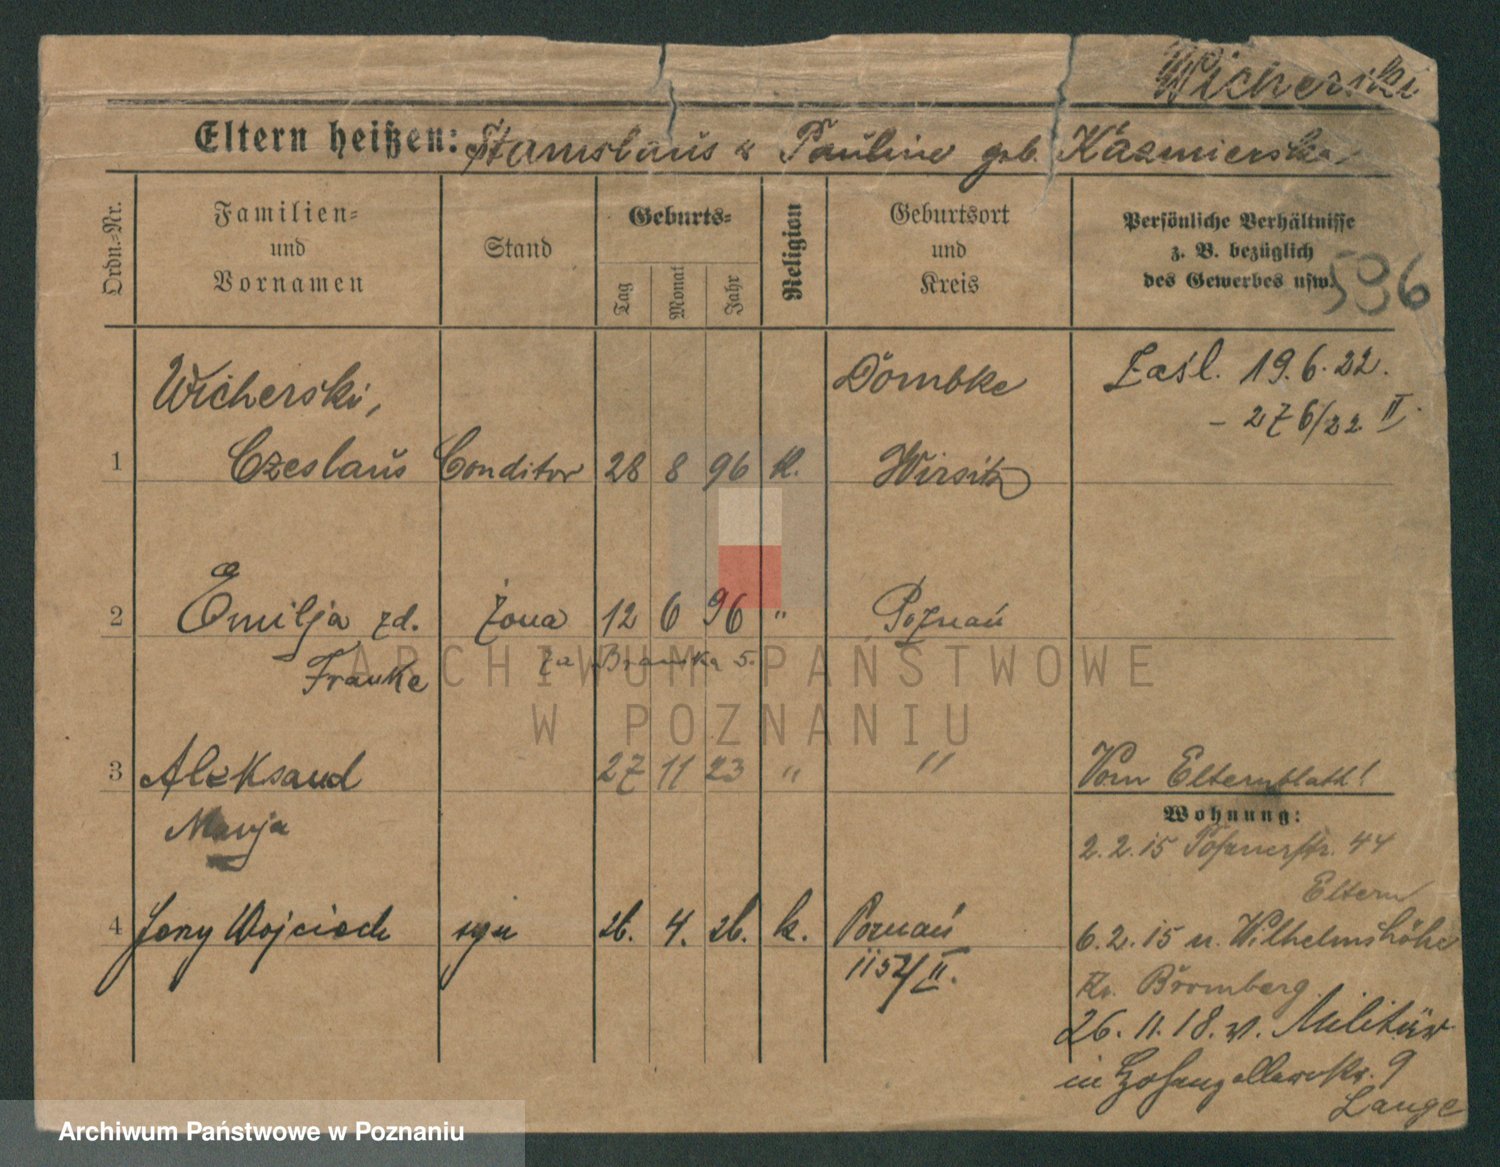 Wicherski
Eltern heißen: Stanislaus u Pauline geb. Kazmierska
Ordn.-Nr.
Familien- und Vornamen
Stand
Geburts-
Tag
Monat
Jahr
Religion
Geburtsort und Kreis
Persönliche Verhältnisse
z. B. bezüglich
des Gewerbes usw.
596
Wicherski,
Dömbke
Zaśl. 19.6.22.
- 276/22 II.
1 Czeslaus Conditor 28 8 96 K. Wirsitz
2 Emilja zd. żona 12 6 96 " Poznań
Franke
3 Aleksand 27 11 23 " "
Vom Elternblatt!
Marja
Wohnung:
2.2.15 Posenerstr. 44
Eltern
4 Jerzy Wojciech syn 26. 4. 26. k. Poznań
1154/II.
6.2.15 n. Wilhelmshöhe
Kr. Bromberg
26.11.18. v. Militär
in 9
Lange
ARCHIWUM PAŃSTWOWE
W POZNANIU
Archiwum Państwowe w Poznaniu